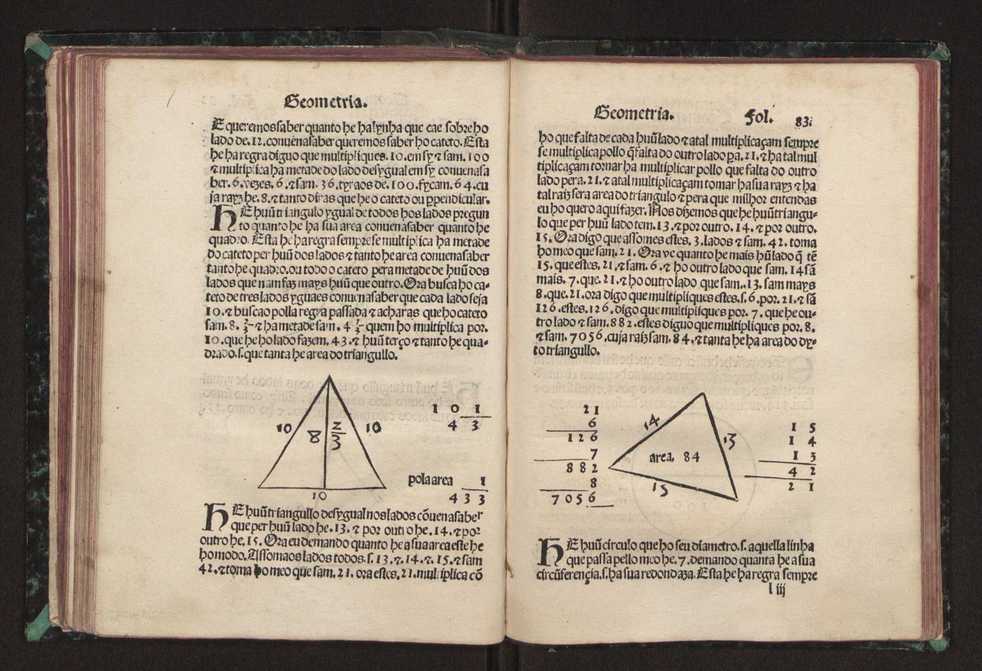 Geometria.
E queremos saber quanto he ha lynha que cae sobre ho
lado de .12. conuen a saber queremos saber ho cateto. Esta
he ha regra diguo que multipliques .10. em sy & sam .100
& multiplica ha metade do lado desygual em sy conuen a sa
ber .6. vezes .6. & sam .36. tyraos de .100. fycam .64. cu
ja rayz he .8. & tanto diras que he o cateto ou ppendicular.
HE huũ triangulo ygual de todos hos lados pregun
to quanto he ha sua area conuen a saber quanto he
quadro. Esta he ha regra sempre se multiplica ha metade
do cateto per huũ dos lados & tanto he area conuen a saber
tanto he quadro. ou todo o cateto pera metade de huũ dos
lados que nam faz mays huũ que outro. Ora busca ho ca-
teto de tres lados yguaes conuen a saber que cada lado seja
10. & busca o polla regra passada & acharas que ho cateto
sam .8. 2/3 & ha metade sam . 4 1/3 quem ho multiplica por.
10. que he ho lado fazem .43. & huũ terço & tanto he qua-
drado. s. que tanta he area do triangullo.
10
8
2/3
10
10
1 0 1
4 3
pola area 1
4 3 3
HE huũ triangullo desygual nos lados cõuen a saber
que per huũ lado he .13. & por outro he .14. & por
outro he .15. Ora eu demando quanto he a sua area este he
ho modo. Assoma os lados todos. s. 13. & .14. & .15. & sam
42. & toma ho meo que sam .21. ora estes .21. multiplica cõ
Geometria. Fol. 83.
ho que falta de cada huũ lado & a tal multiplicaçam sempre
se multiplica pollo q̃ falta do outro lado pa .21. & ha tal mul
tiplicaçam tornar ha multiplicar pollo que falta do outro
lado pera .21. & a tal multiplicaçam tomar ha sua rayz & ha
tal raiz sera area do triangulo & pera que milhor entendas
eu ho quero aqui fazer. Nos dizemos que he huũ triangu-
lo que per huũ lado tem .13. & por outro .14. & por outro.
15. Ora digo que assomes estes .3. lados & sam .42. toma
ho meo que sam .21. Ora ve quanto he mais hũ lado q̃ tẽ
15. que estes .21. & sam .6. & ho outro lado que sam .14 sã
mais .7. que .21. & ho outro lado que sam .13. sam mays
8. que .21. ora digo que multipliques estes. s. 6. por .21. & sã
126. estes .126. digo que multipliques por .7. que he ou-
tro lado & sam .882. estes diguo que multipliques por .8.
& sam .7056. cuja raiz sam .84. & tanta he ha area do dy-
to triangullo.
21
6
1 2 6
7
8 8 2
8
7 0 5 6
14
13
area. 84
15
1 5
1 4
1 3
4 2
2 1
HE huũ circulo que ho seu diametro. s. aquella linha
que passa pello meo he .7. demando quanta he a sua
circũferençia. s. ha sua redondaza. Esta he ha regra sempre
l iij